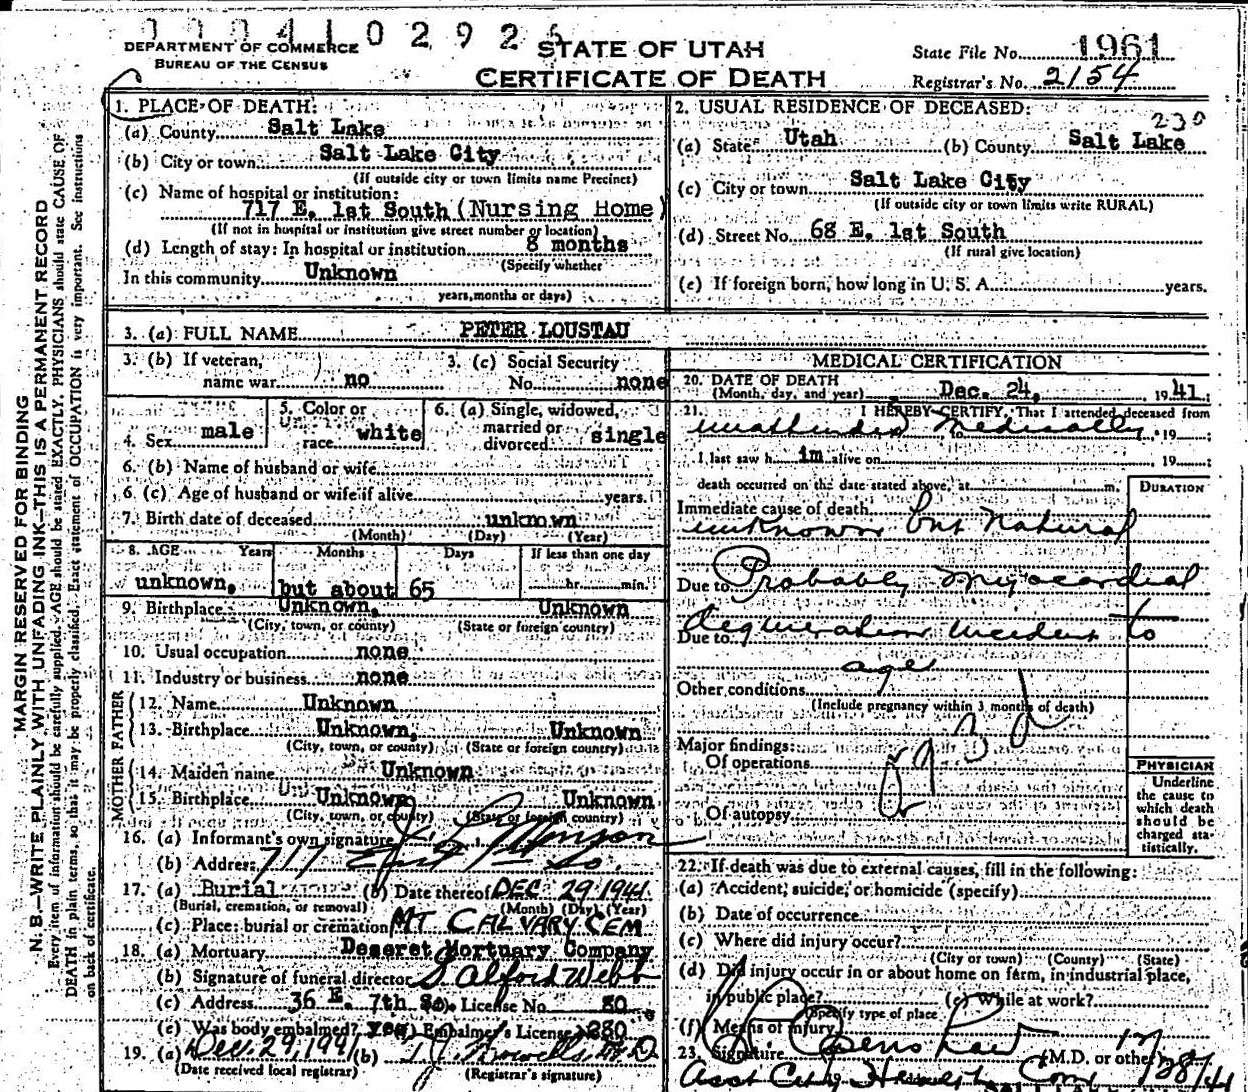 DEPARTMENT OF COMMERCE
BUREAU OF THE CENSUS
STATE OF UTAH
CERTIFICATE OF DEATH
State File No. 1961
Registrar's No. 2154
MARGIN RESERVED FOR BINDING
N. B.—WRITE PLAINLY WITH UNFADING INK—THIS IS A PERMANENT RECORD
Every item of information should be carefully supplied. AGE should be stated EXACTLY. PHYSICIANS should state CAUSE OF
DEATH in plain terms, so that it may be properly classified. Exact statement of OCCUPATION is very important. See instructions
on back of certificate.
1. PLACE OF DEATH:
(a) County Salt Lake
(b) City or town Salt Lake City
(If outside city or town limits name Precinct)
(c) Name of hospital or institution:
717 E. 1st South (Nursing Home)
(If not in hospital or institution give street number or location)
(d) Length of stay: In hospital or institution 8 months
(Specify whether
In this community Unknown
years, months or days)
2. USUAL RESIDENCE OF DECEASED:
230
(a) State Utah (b) County Salt Lake
(c) City or town Salt Lake City
(If outside city or town limits write RURAL)
(d) Street No. 68 E. 1st South
(If rural give location)
(e) If foreign born, how long in U. S. A. years.
3. (a) FULL NAME PETER LOUSTAU
3. (b) If veteran,
name war no
3. (c) Social Security
No. none
4. Sex male
5. Color or
race white
6. (a) Single, widowed,
married or
divorced single
6. (b) Name of husband or wife
6. (c) Age of husband or wife if alive years.
7. Birth date of deceased unknown
(Month) (Day) (Year)
8. AGE Years Months Days If less than one day
unknown, but about 65 hr. min.
9. Birthplace Unknown, Unknown
(City, town, or county) (State or foreign country)
10. Usual occupation none
11. Industry or business none
FATHER
12. Name Unknown
13. Birthplace Unknown, Unknown
(City, town, or county) (State or foreign country)
MOTHER
14. Maiden name Unknown
15. Birthplace Unknown Unknown
(City, town, or county) (State or foreign country)
16. (a) Informant's own signature
(b) Address 717 East 1 So.
17. (a) Burial (b) Date thereof DEC 29 1941
(Burial, cremation, or removal) (Month) (Day) (Year)
(c) Place: burial or cremation MT CALVARY CEM
18. (a) Mortuary Deseret Mortuary Company
(b) Signature of funeral director Salford Webb
(c) Address 36 E. 7th So. License No. 80
(e) Was body embalmed? yes Embalmer's License 280
19. (a) Dec. 29, 1941 (b) M.D.
(Date received local registrar) (Registrar's signature)
MEDICAL CERTIFICATION
20. DATE OF DEATH
(Month, day, and year) Dec. 24, 1941
21. I HEREBY CERTIFY, That I attended deceased from
unattended medically to 19
I last saw h im alive on 19
death occurred on the date stated above, at m.
DURATION
Immediate cause of death
unknown but natural
Due to Probably myocardial
degeneration incident to
Due to
age
Other conditions
(Include pregnancy within 3 months of death)
Major findings:
Of operations
Of autopsy
PHYSICIAN
Underline
the cause to
which death
should be
charged sta-
tistically.
22. If death was due to external causes, fill in the following:
(a) Accident, suicide, or homicide (specify)
(b) Date of occurrence
(c) Where did injury occur?
(City or town) (County) (State)
(d) Did injury occur in or about home on farm, in industrial place,
in public place? (e) While at work?
(Specify type of place
(f) Means of injury
23. Signature (M.D. or other)
Asst City Health Com 12/28/41